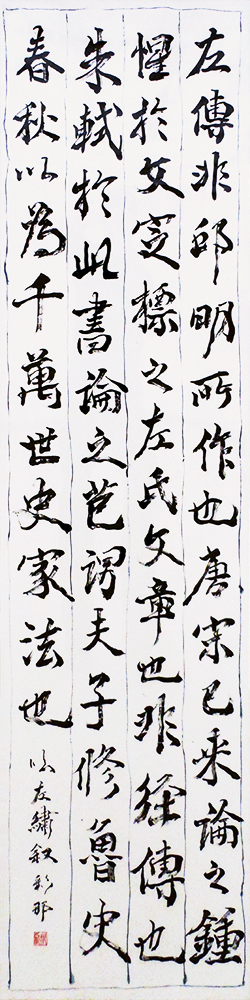 左傳非邱明所作也唐宋已来論之鍾
惺於文定標之左氏文章也非經傳也
朱軾於此書論之謂夫子修魯史
春秋以為千萬世史家法也
左繡叙彩